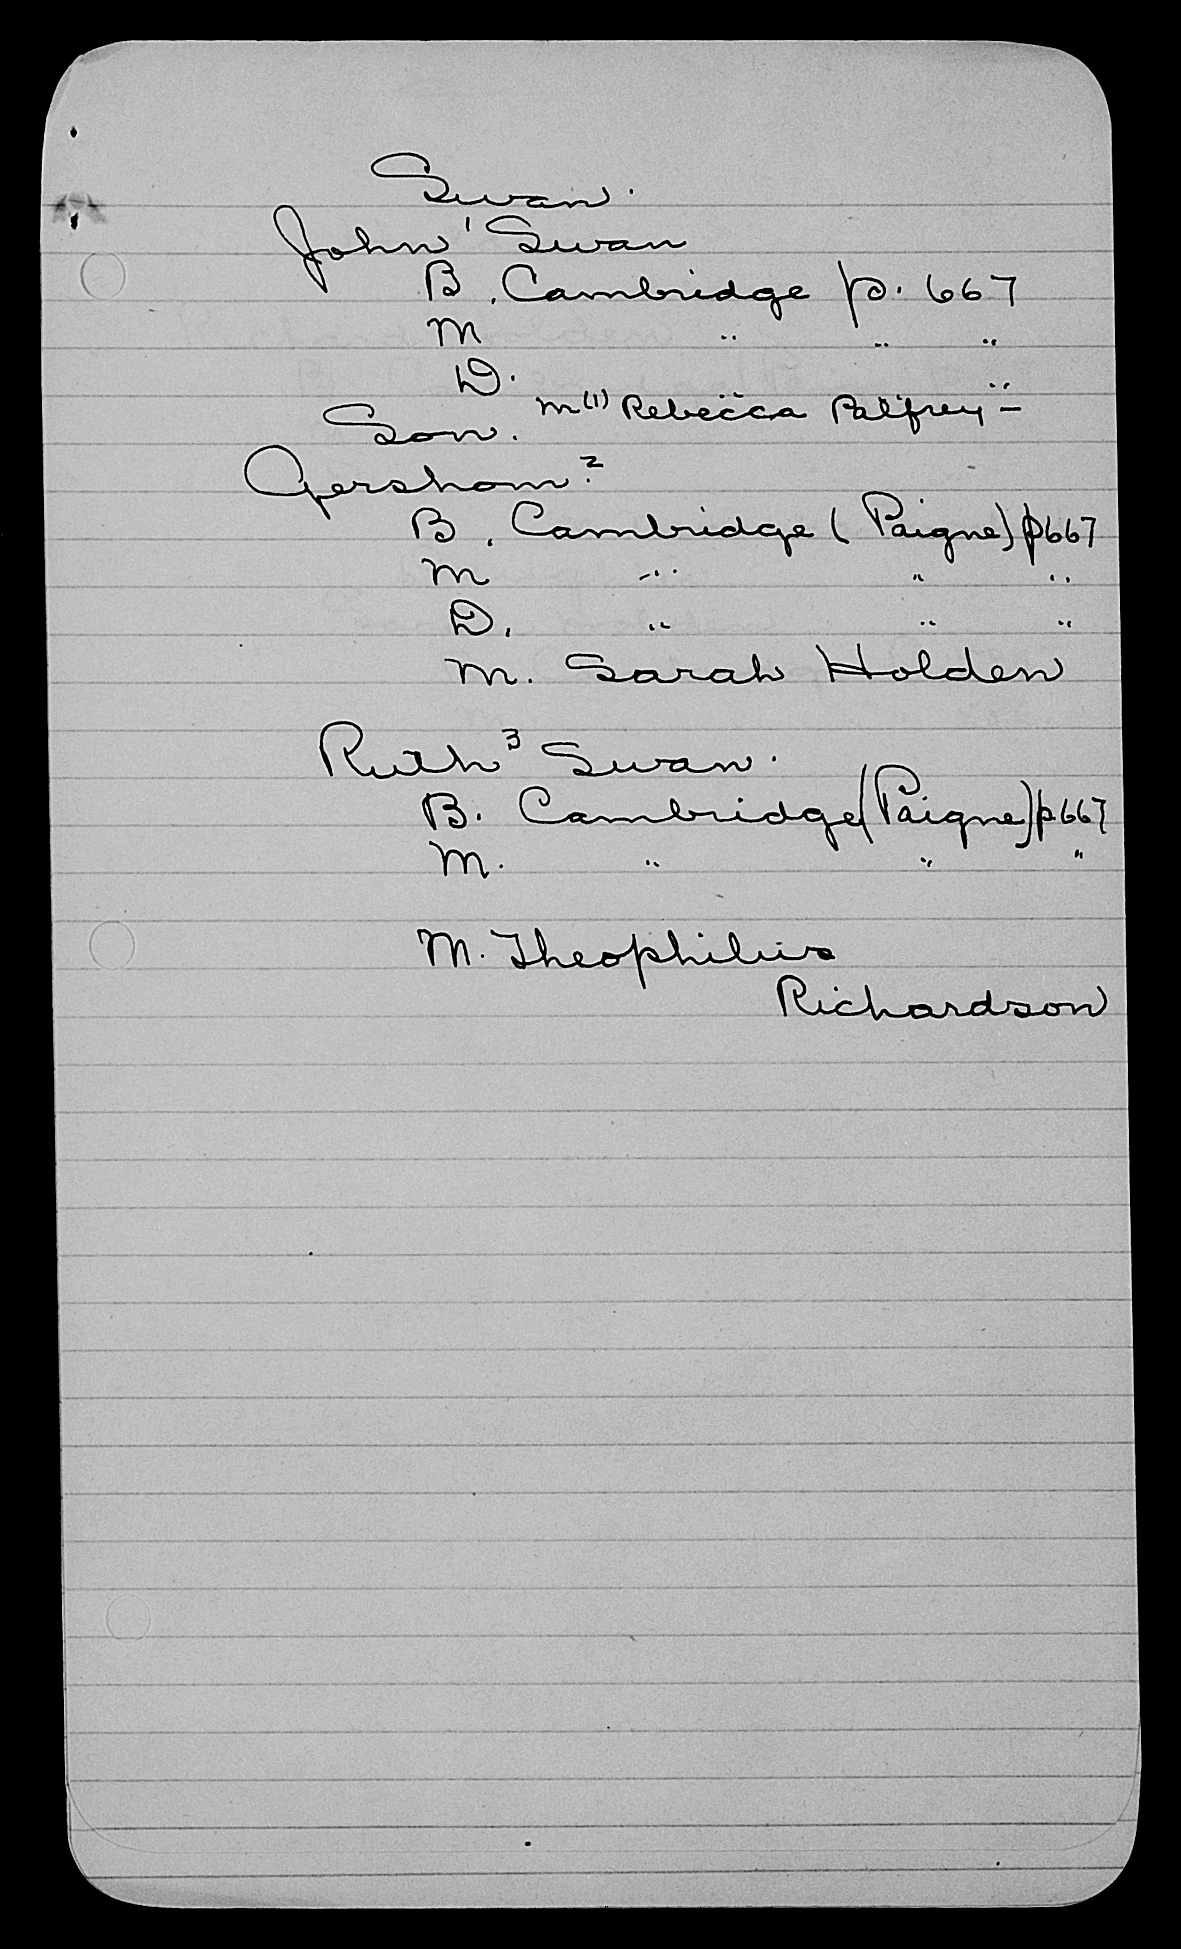 Swan.
John¹ Swan
B. Cambridge p. 667
M " " "
D. " " "
m(1) Rebecca Palfrey –
Son.
Gershom².
B. Cambridge (Paigne) p667
M " " "
D. " " "
M. Sarah Holden
Ruth³ Swan.
B. Cambridge (Paigne) p.667
M. " " "
M. Theophilius
Richardson